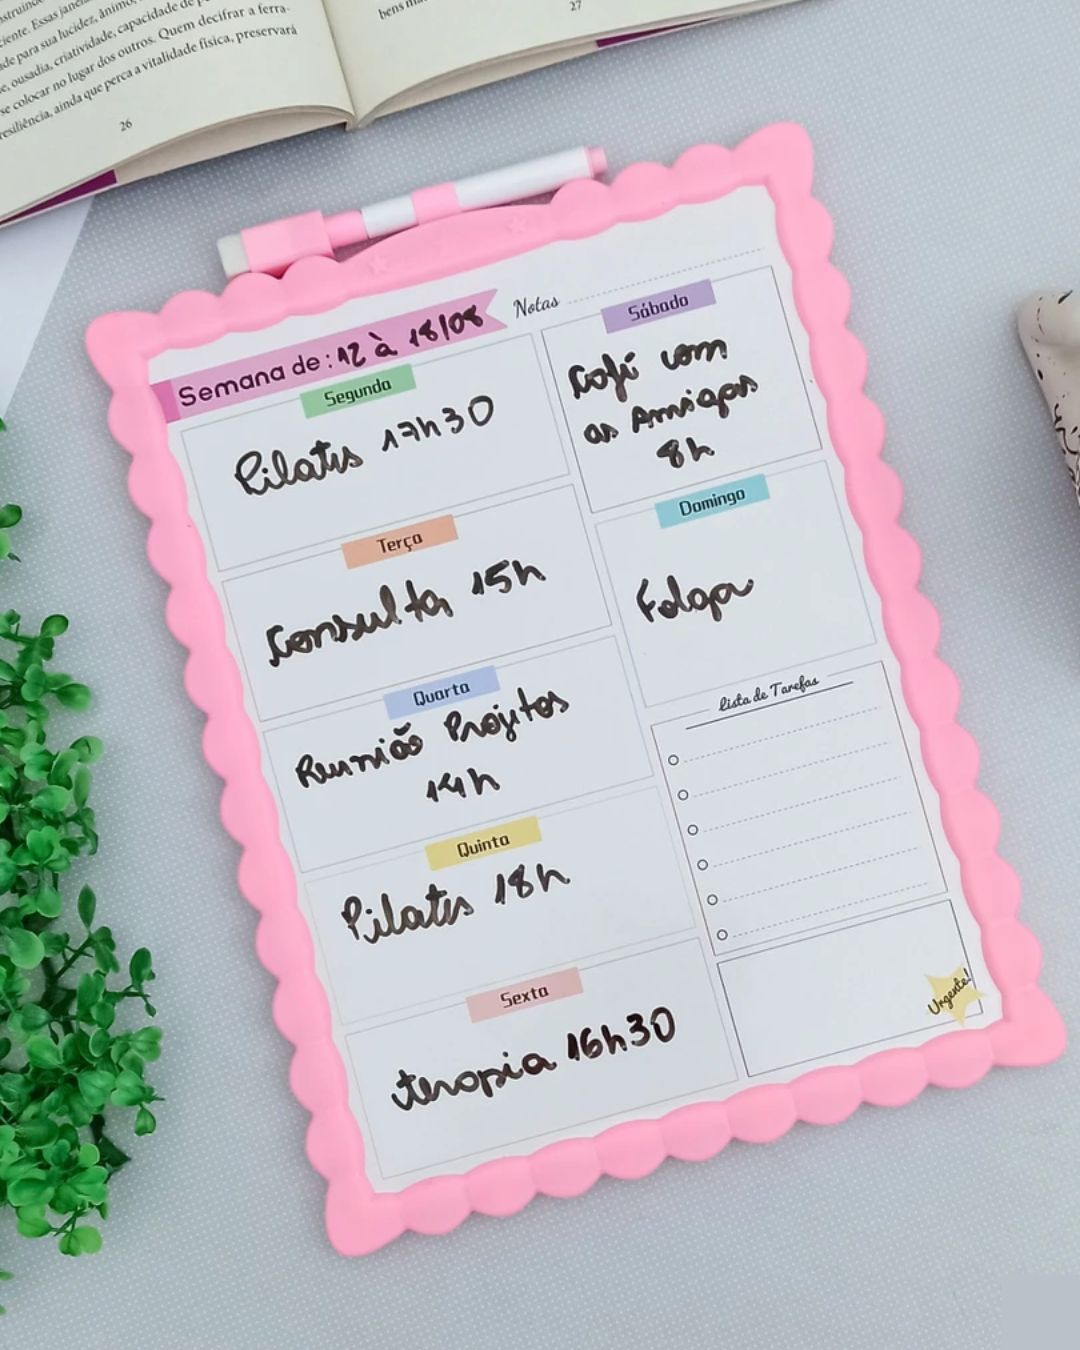 nstruindo
ciente. Essas jane
de para sua lucidez, ânimo,
e, ousadia, criatividade, capacidade de
se colocar no lugar dos outros. Quem decifrar a ferra-
resiliência, ainda que perca a vitalidade física, preservará
26
bens
27
Semana de: 12 à 18/08
Notas
Segunda
Pilates 17h30
Terça
Consulta 15h
Quarta
Reunião Projetos
14h
Quinta
Pilates 18h
Sexta
terapia 16h30
Sábado
Café com
as Amigas
8h
Domingo
Folga
Lista de Tarefas
Urgente!